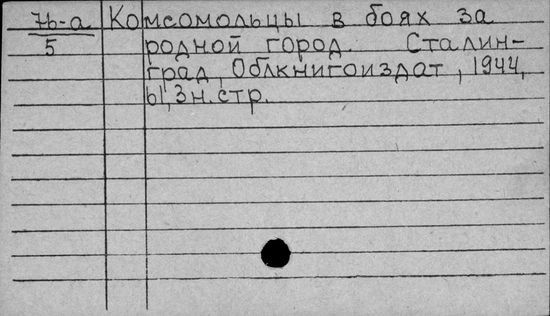 Комсомольцы в боях за
5 родной город. Сталин-
град, Облкнигоиздат, 1944,
3 н. стр.